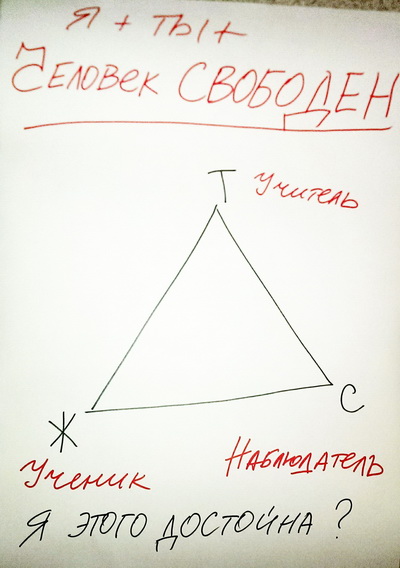 Я + ТЫ +
ЧЕЛОВЕК СВОБОДЕН
Т Учитель
Ж С
Ученик Наблюдатель
Я ЭТОГО ДОСТОЙНА ?